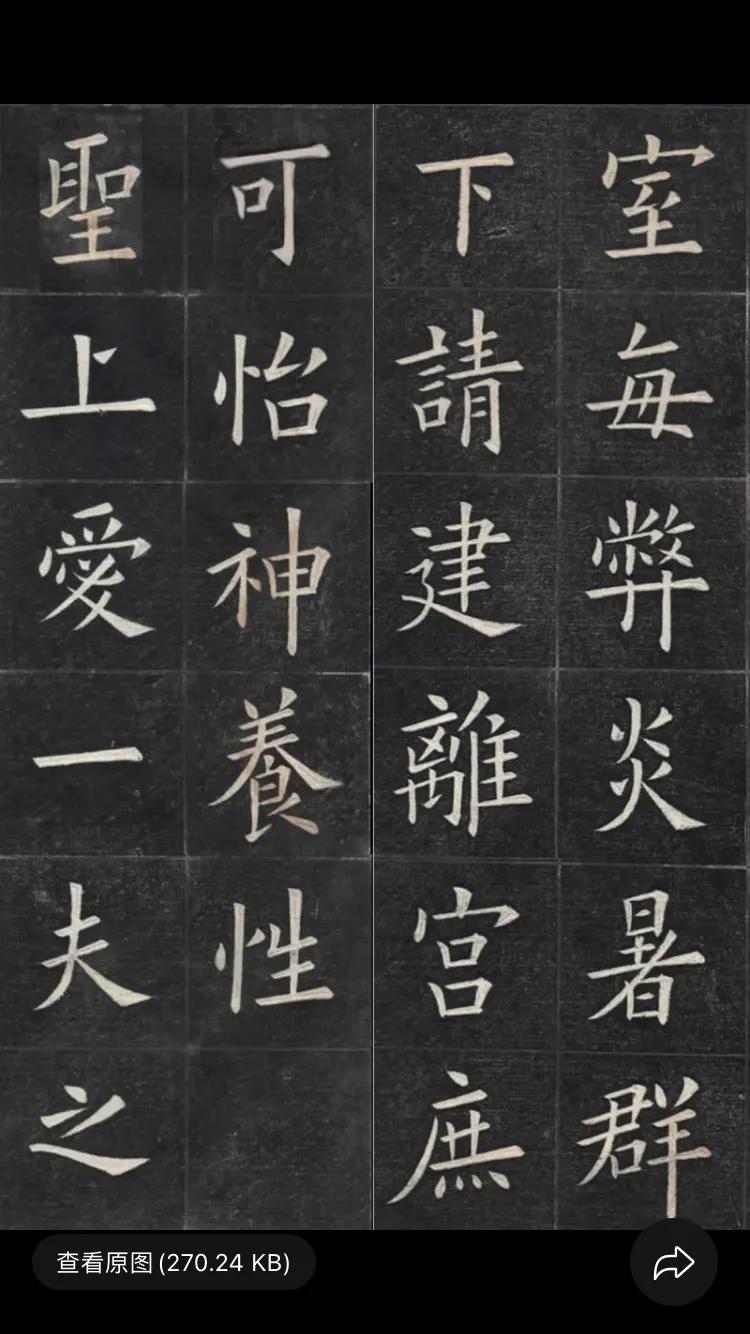 室每弊炎暑群
下請建離宫庶
可怡神養性
聖上愛一夫之
查看原图(270.24 KB)